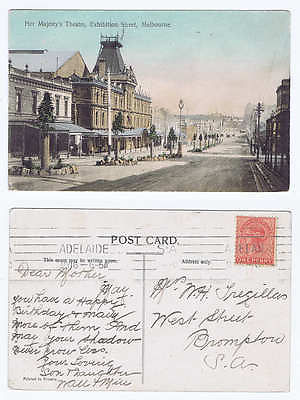 Her Majesty's Theatre, Exhibition Street, Melbourne.
POST CARD.
This space may be written upon.
Address only.
ADELAIDE
ADELAIDE
ONE PENNY
Dear Mother
May
you have a Happy
Birthday & many
more of them And
may your shadow
never grow less.
Your Loving
Son & Daughter
Will &
Mrs W. H. Tregillas
West Street
Brompton
S.A